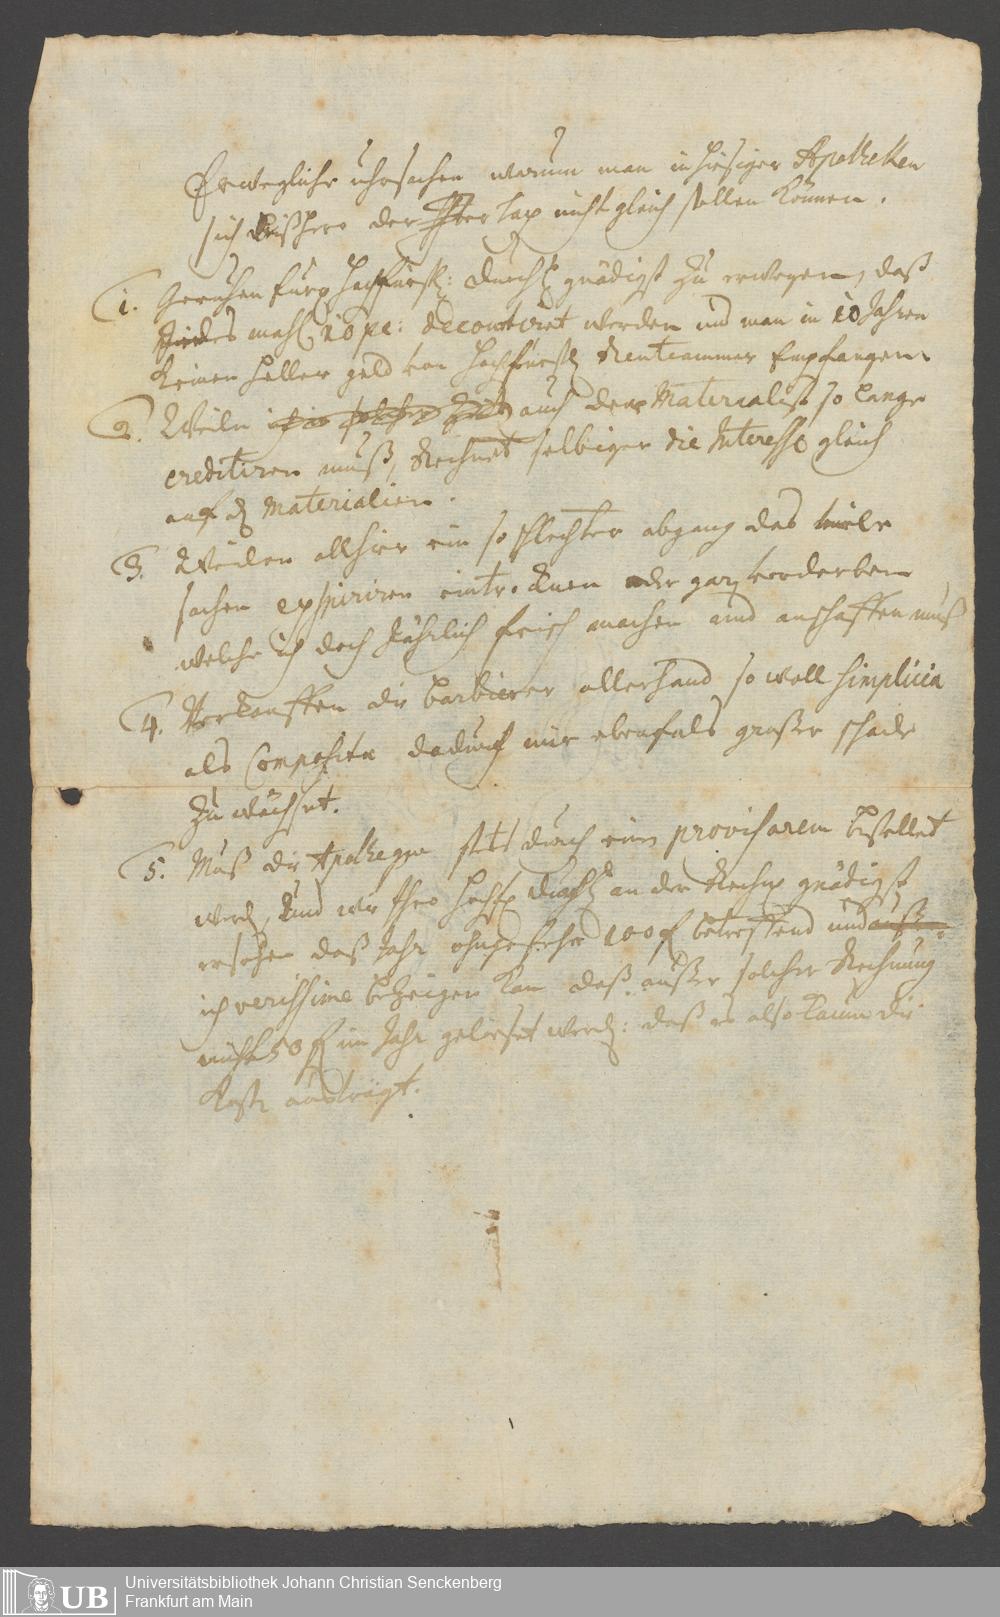 Erwegliche uhrsachen warum man in hiesiger Apothecken
sich bißhero der Tax nicht gleich stellen können.
1. Geruhen Hochfürstl: Durchl gnädigst zu erwegen, daß
mahl 20 pc: decourtiret werden und man in 10 Jahren
keinen Heller geld von Hochfürstl Rentcammer Empfangen
2. Weiln auch der Materialist so lange
creditiren muß, Rechnet selbiger die Interesse gleich
auf d Materialien.
3. Weilen allhier ein so schlechter abgang das viele
sachen expiriren eintrocknen oder gar verderben
welche ich doch Jährlich frisch machen und anschaffen muß
4. Verkauffen die Barbierer allerhand so woll Simplicia
als Composita dadurch mir ebenfals großer schade
zu wächset.
5. Muß die stets durch einen provisorem bestellet
werd, Und wie Ihro Hochf Durchl an der Rechn gnädigst
ersehen daß Jahr ohngefehr 100 f betreffend und
ich verissime bezeigen kan daß außer solcher Rechnung
nicht 50 f im Jahr geloeset werd: daß es also kaum die
Kost austrägt.
Universitätsbibliothek Johann Christian Senckenberg
Frankfurt am Main
UB